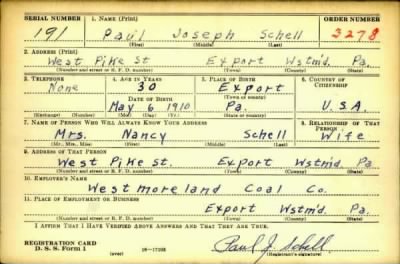 SERIAL NUMBER 1. NAME (Print) ORDER NUMBER
191 Paul Joseph Schell 3278
(First) (Middle) (Last)
2. ADDRESS (Print)
West Pike St Export Wstmd. Pa.
(Number and street or R. F. D. number) (Town) (County) (State)
3. TELEPHONE 4. AGE IN YEARS 5. PLACE OF BIRTH 6. COUNTRY OF CITIZENSHIP
None 30 Export
DATE OF BIRTH (Town or county)
May 6 1910 Pa. U.S.A.
(Mo.) (Day) (Yr.) (State or country)
7. NAME OF PERSON WHO WILL ALWAYS KNOW YOUR ADDRESS 8. RELATIONSHIP OF THAT PERSON
Mrs. Nancy Schell Wife
(Mr., Mrs., Miss) (First) (Middle) (Last)
9. ADDRESS OF THAT PERSON
West Pike St. Export Wstmd. Pa.
(Number and street or R. F. D. number) (Town) (County) (State)
10. EMPLOYER'S NAME
Westmoreland Coal Co.
11. PLACE OF EMPLOYMENT OR BUSINESS
Export Wstmd. Pa.
(Number and street or R. F. D. number) (Town) (County) (State)
I AFFIRM THAT I HAVE VERIFIED ABOVE ANSWERS AND THAT THEY ARE TRUE.
REGISTRATION CARD
D. S. S. Form 1 (over) Paul J. Schell
(Registrant's signature)